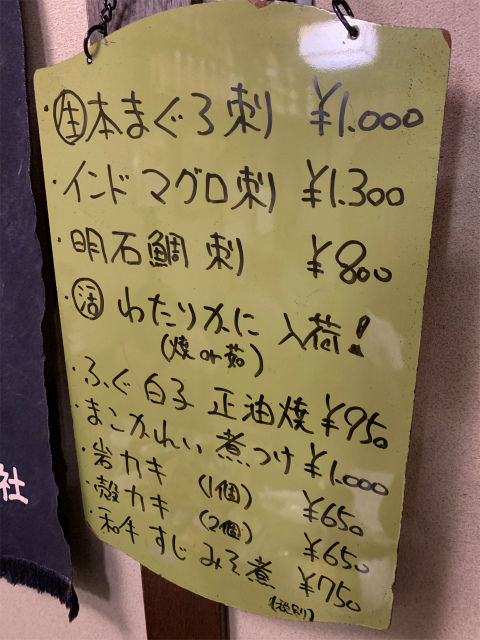 ・生本まぐろ刺 ¥1.000
・インドマグロ刺 ¥1.300
・明石鯛刺 ¥800
・活わたりがに入荷!
(焼or茹)
・ふぐ白子正油焼¥950
・まこがれい煮つけ¥1.000
・岩カキ (1個) ¥650
・殻カキ (2個) ¥650
・和牛すじみそ煮 ¥750
(税別)
社